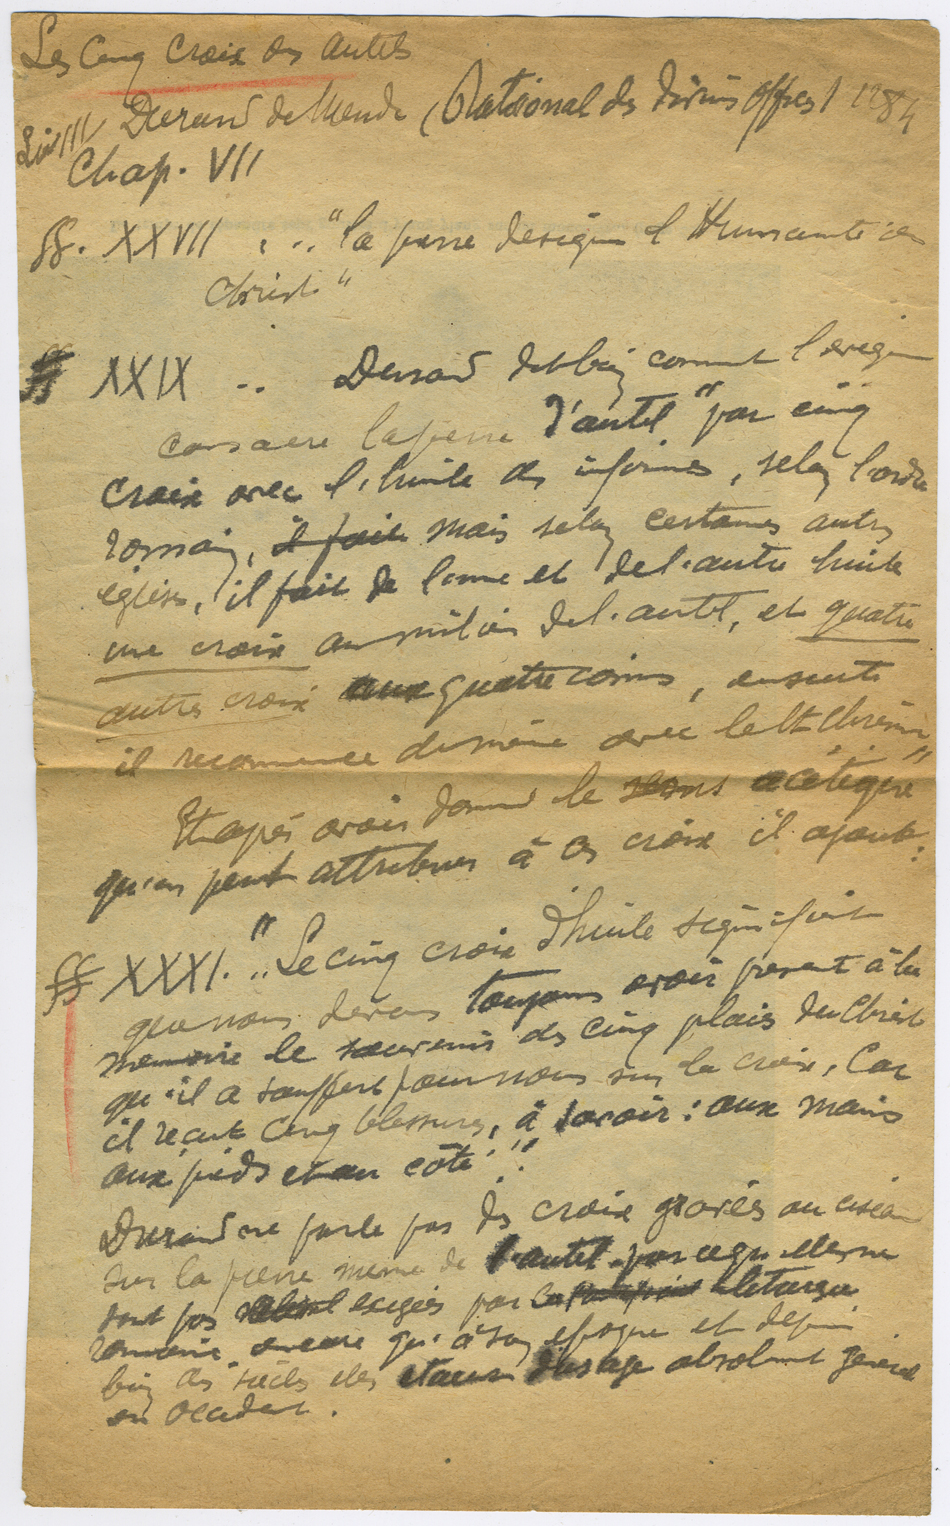 Les Cinq Croix des autels
Liv III Durand de Mende (Rational des divins offices) 1284
Chap. VII
§§. XXVII : .. "la pierre designe l'Humanité du
Christ"
§§ XXIX .. Durand dit bien comment l'
consacre la pierre d'autel "par cinq
croix avec l'huile des infirmes, selon l'ordre
romain, il fait mais selon certaines autres
églises, il fait de l'une et de l'autre huile
une croix au milieu de l'autel, et quatre
autres croix aux quatre coins, ensuite
il recommence de même avec le St Chrême"
Et après avoir donné le sens acétique
qu'on peut attribuer à ces croix il ajoute:
§§ XXXI. "..Le cinq croix d'huile signifient
que nous devons toujours avoir present à la
memoire le souvenir des cinq plaies du Christ
qu'il a souffert pour nous sur la croix, Car
il reçut Cinq blessures, à savoir: aux mains
aux pieds et au côté"!
Durand ne parle pas des croix gravées au ciseau
sur la pierre meme de l'autel parce qu'elles ne
sont pas exigées par la liturgie
romaine encore qu'à son epoque et depuis
bien des siècles elles etaient d'usage absolument general
en Occident.